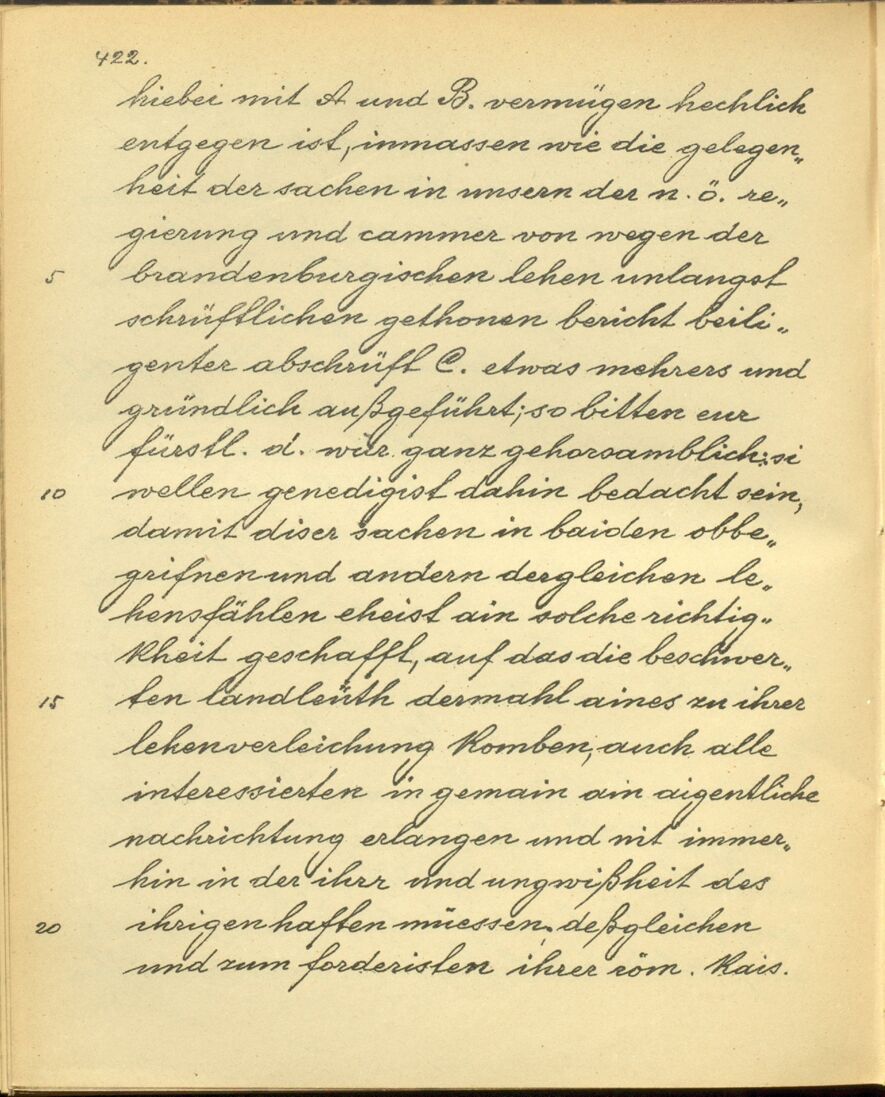 422.
hiebei mit A und B. vermügen hechlich
entgegen ist, inmassen wie die gelegen„
heit der sachen in unsern der n. ö. re„
gierung und cammer von wegen der
5 brandenburgischen lehen unlangst
schrüfftlichen gethonen bericht beili„
genter abschrüft C. etwas mehrers und
gründlich außgeführt; so bitten eur
fürstl. d. wür ganz gehorsamblich: si
10 wellen genedigist dahin bedacht sein,
damit diser sachen in baiden obbe„
grifnen und andern dergleichen le„
hensfählen eheist ain solche richtig„
kheit geschafft, auf das die beschwer„
15 ten landleüth dermahl aines zu ihrer
lehenverleichung komben, auch alle
interessierten in gemain ain aigentliche
nachrichtung erlangen und nit immer„
hin in der ihrr und ungwißheit des
20 ihrigen haften müessen. deßgleichen
und zum forderisten ihrer röm. kais.